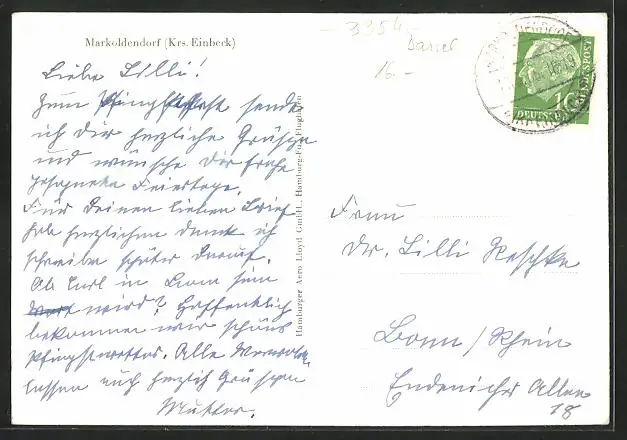 Markoldendorf (Krs. Einbeck)
3354
Dassel
16.-
10
DEUTSCHE BUNDESPOST
Liebe Lilli!
Zum Pfingstfest sende
ich Dir herzliche Grüße
und wünsche Dir frohe
gesegnete Feiertage.
Für Deinen lieben Brief
hab herzlichen Dank ich
schreibe später darauf.
Ob Curl in Bonn sein
wird? Hoffentlich
bekommen wir schönes
Pfingstwetter. Alle
lassen auch herzlich Grüßen
Mutter.
Hamburger Aero Lloyd GmbH., Hamburg-Fu., Flughafen
Frau
Dr. Lilli Reschke
Bonn/Rhein
Endenicher Allee
18